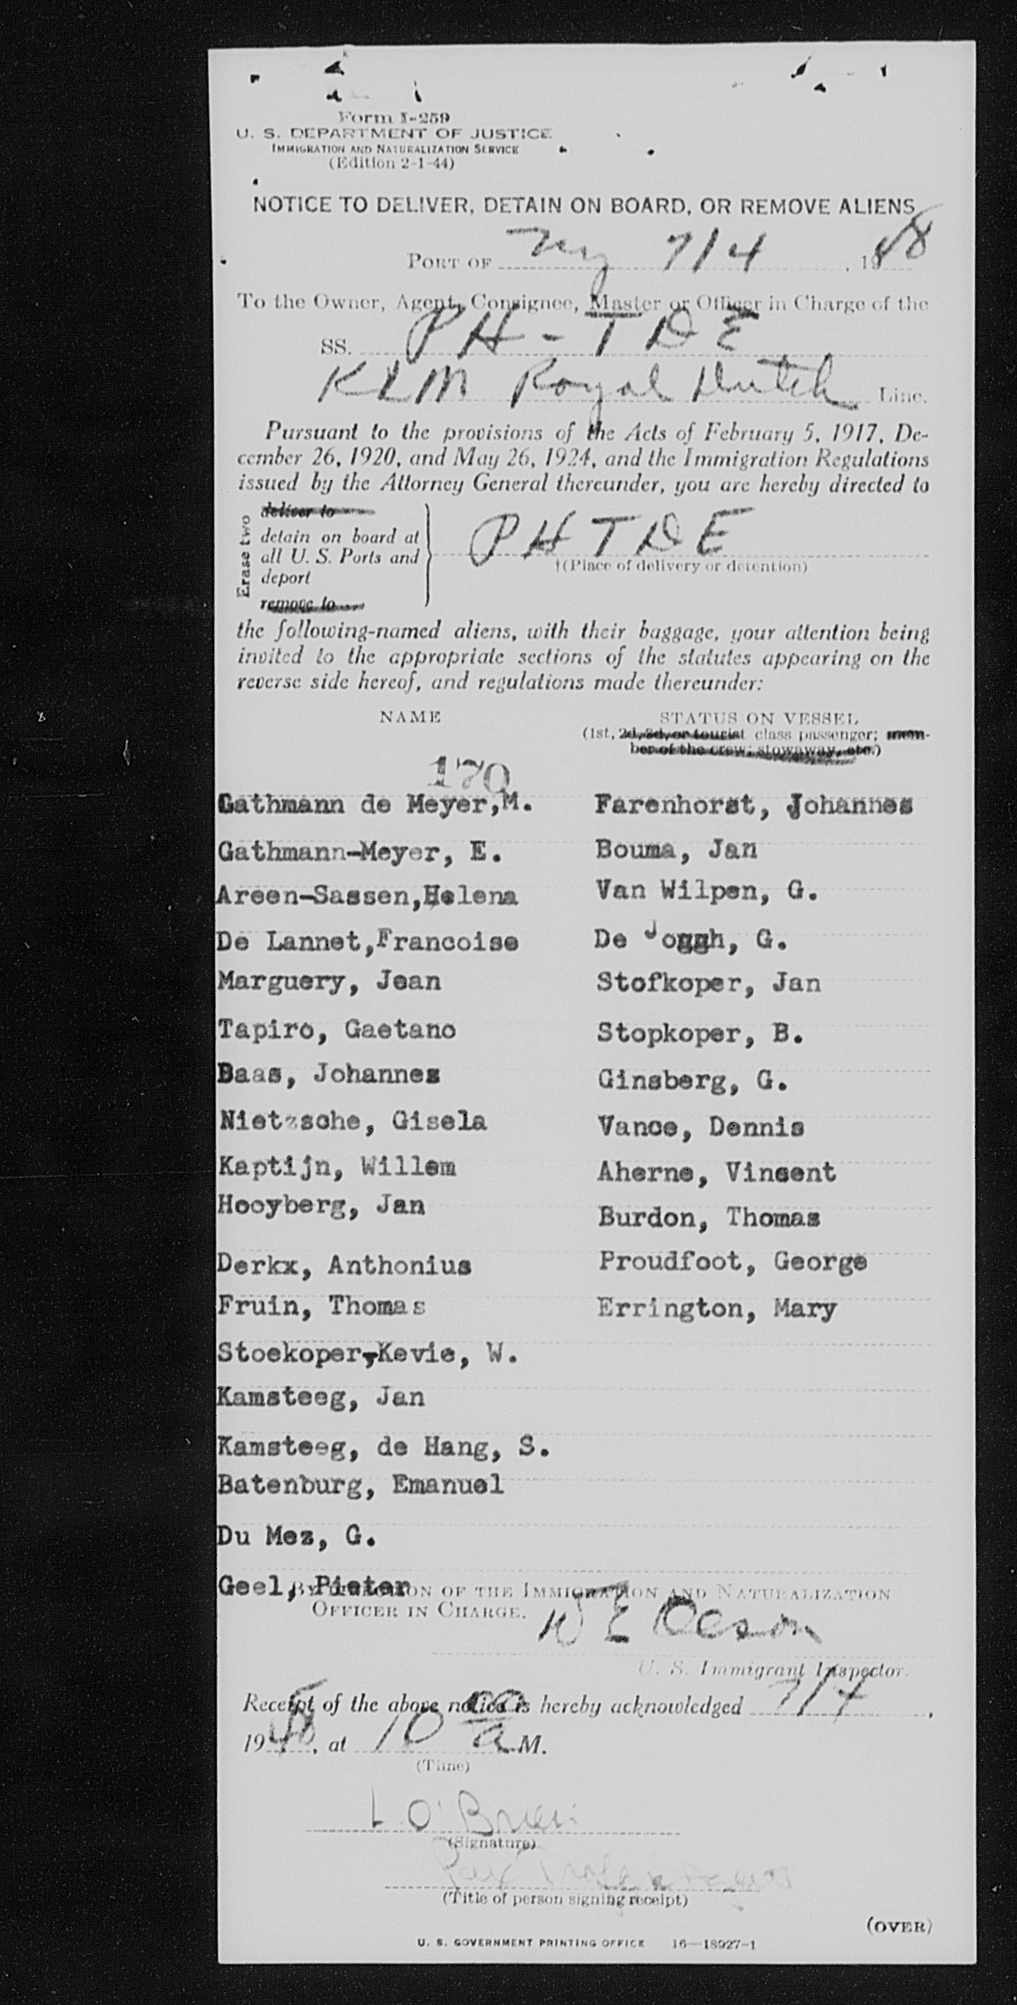 Form I-259
U. S. DEPARTMENT OF JUSTICE
IMMIGRATION AND NATURALIZATION SERVICE
(Edition 2-1-44)
NOTICE TO DELIVER, DETAIN ON BOARD, OR REMOVE ALIENS
PORT OF NY 7/4, 1948
To the Owner, Agent, Consignee, Master or Officer in Charge of the
SS. PH-TDE
KLM Royal Dutch Line.
Pursuant to the provisions of the Acts of February 5, 1917, De-
cember 26, 1920, and May 26, 1924, and the Immigration Regulations
issued by the Attorney General thereunder, you are hereby directed to
Erase two
deliver to
detain on board at
all U. S. Ports and
deport
remove to
PHTDE
†(Place of delivery or detention)
the following-named aliens, with their baggage, your attention being
invited to the appropriate sections of the statutes appearing on the
reverse side hereof, and regulations made thereunder:
NAME STATUS ON VESSEL
(1st, 2d, 3d, or tourist class passenger; mem-
ber of the crew; stowaway, etc.)
170
Gathmann de Meyer,M. Farenhorst, Johannes
Gathmann-Meyer, E. Bouma, Jan
Areen-Sassen,Helena Van Wilpen, G.
De Lannet,Francoise De Joggh, G.
Marguery, Jean Stofkoper, Jan
Tapiro, Gaetano Stopkoper, B.
Baas, Johannes Ginsberg, G.
Nietzsche, Gisela Vance, Dennis
Kaptijn, Willem Aherne, Vincent
Hooyberg, Jan Burdon, Thomas
Derkx, Anthonius Proudfoot, George
Fruin, Thomas Errington, Mary
Stoekoper-Kevie, W.
Kamsteeg, Jan
Kamsteeg, de Hang, S.
Batenburg, Emanuel
Du Mez, G.
Geel, Pieter
BY DIRECTION OF THE IMMIGRATION AND NATURALIZATION
OFFICER IN CHARGE.
W E Olson
U. S. Immigrant Inspector.
Receipt of the above notice is hereby acknowledged 7/4,
1948, at 10 00 a M.
(Time)
L O'Brien
(Signature)
(Title of person signing receipt)
(OVER)
U. S. GOVERNMENT PRINTING OFFICE 16—18927-1